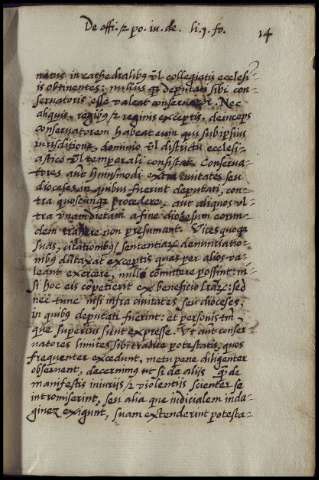 De offi. et po. iu. de. li. 9. fo. 14
natus in cathedralibus vel collegiatis ecclesi-
is obtinentes: nullus quem deputari sibi con-
servatoris esse valeant conservatores. Nec
aliquis, regibus et reginis exceptis, deinceps
conservatorem habeat eum qui sub ipsius
iurisdictione, dominio vel districtu eccles-
iastico vel temporali consistat. Conserva-
tores aut huiusmodi extra civitates seu
dioceses in quibus fuerint deputati, con-
tra quoscunque procedere, aut aliquos vl-
tra unam dietam a fine diocesum eorun-
dem trahere non presumant. Vices quoque
suas, citationibus sententiarum denuntiatio-
nibus dutaxat exceptis quas per alios va-
leant exercere, nulli comittere possint: ni-
si hoc eis competierit ex beneficio
nec tunc nisi infra civitates seu dioceses,
in quibus deputati fuerint: et personis tm
que superius sient expresse. Vt aut conser-
vatores limites sibi tradite potestatis, quos
frequenter excedunt, metu pene diligenter
observent, decernimus ut si de aliis quam de
manifestis iniuriis et violentiis scienter se
intromiserint, seu alia que iudicialem inda-
ginem exigunt, suam extenderint potesta-